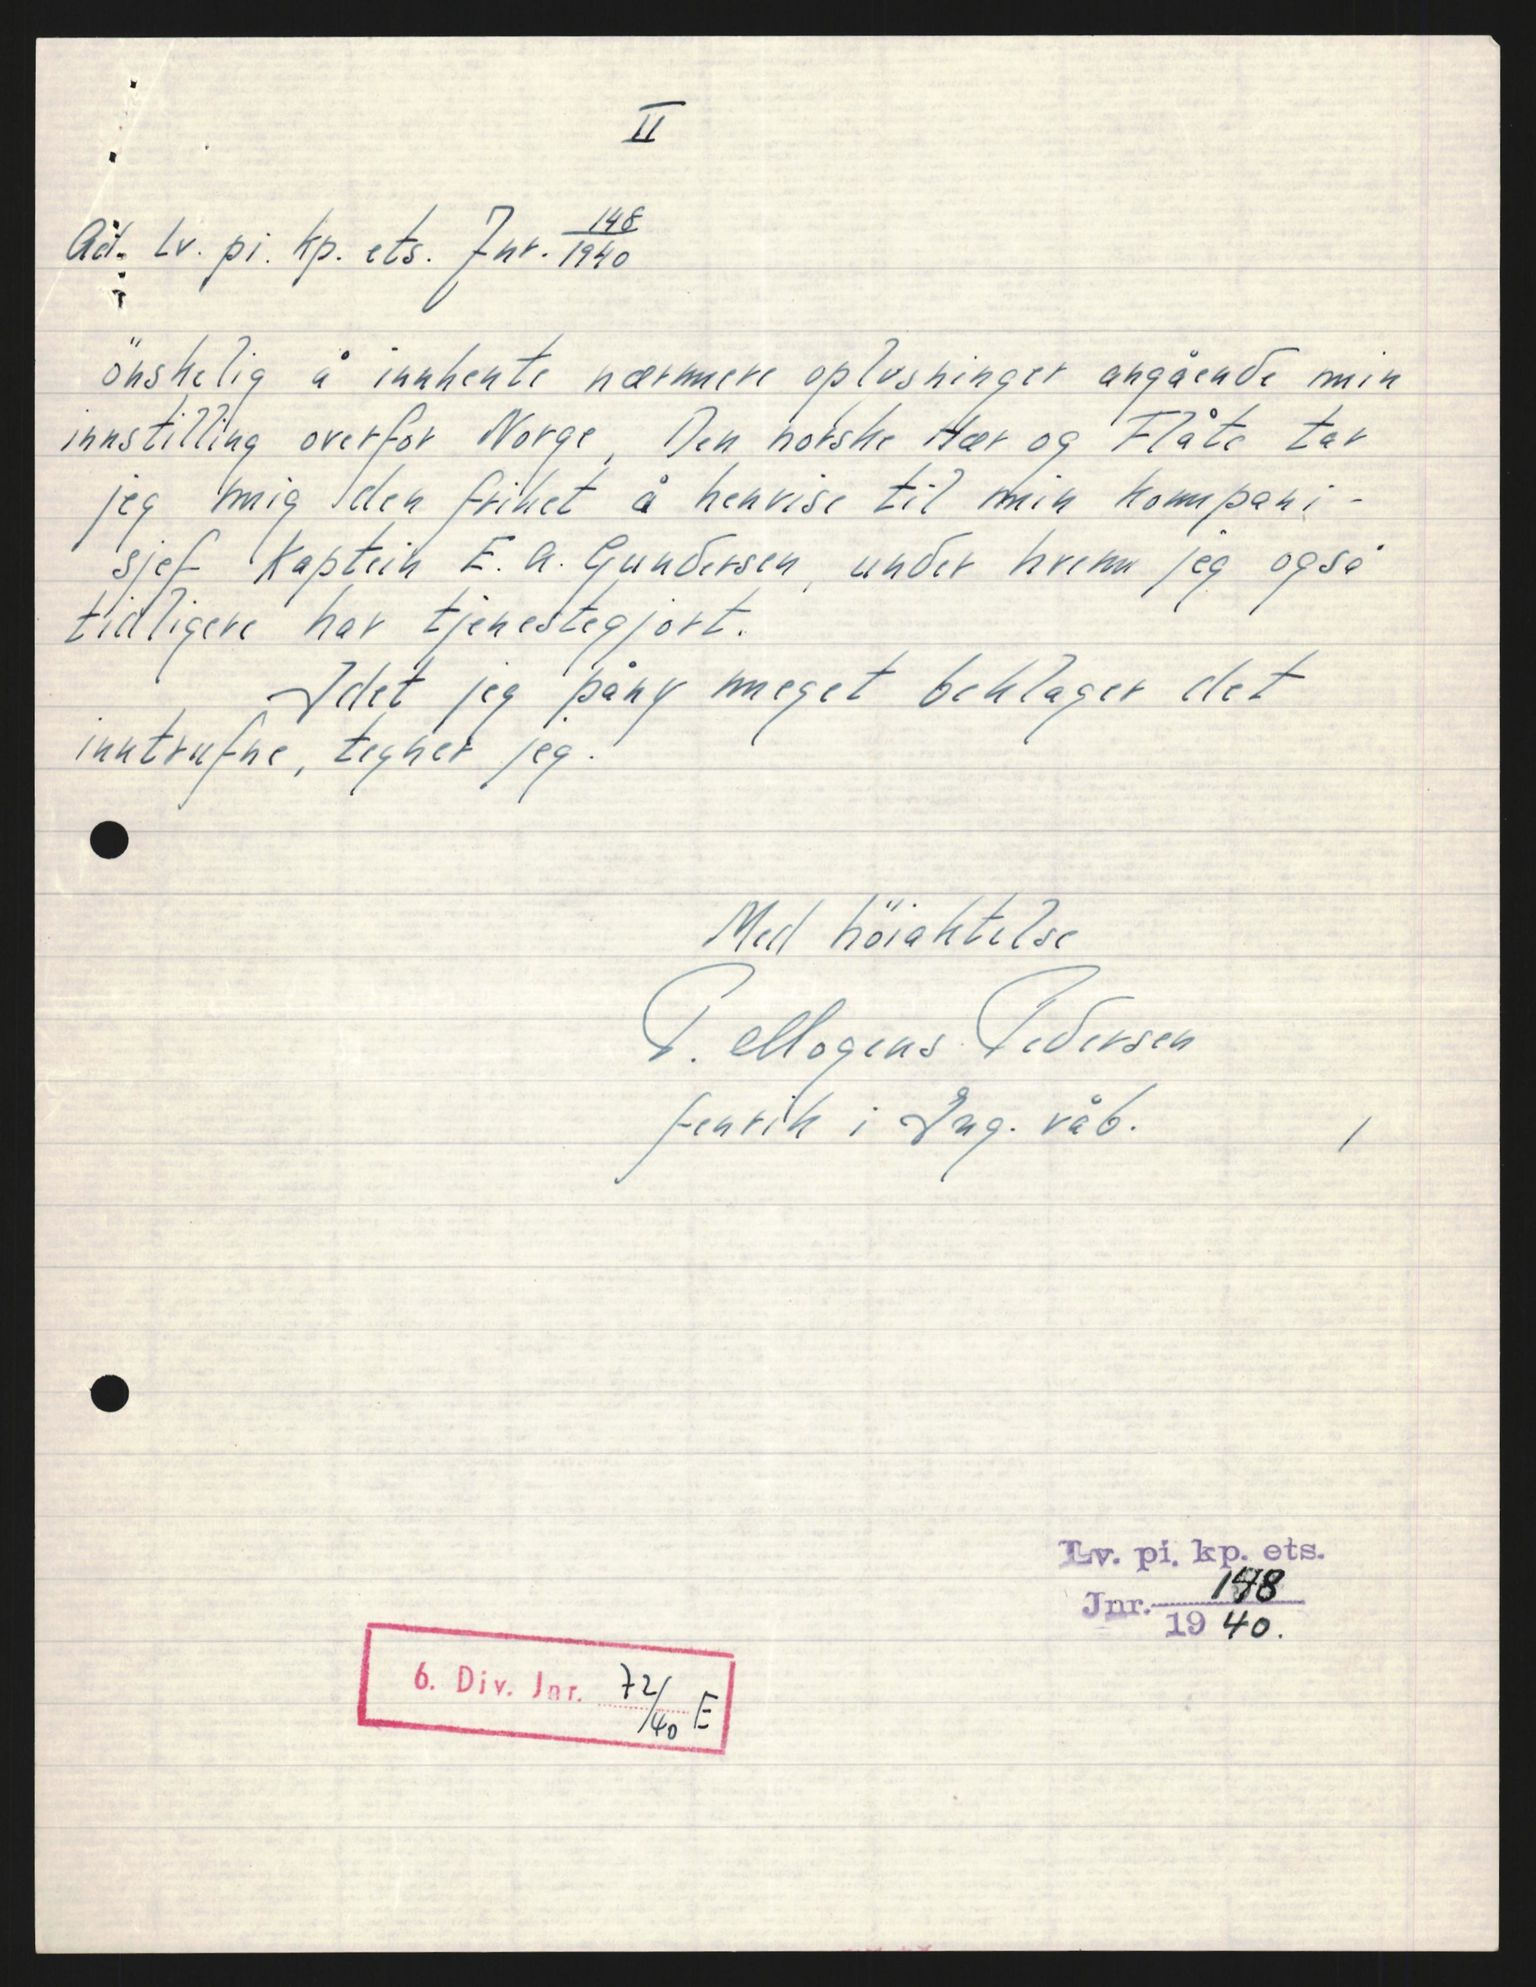 II
Ad. Lv. pi. kp. ets. Jnr. 148/1940
önskelig å innhente nærmere oplysninger angående min
innstilling overfor Norge, Den norske Hær og Flåte tar
jeg mig den frihet å henvise til min kompani-
sjef Kaptein E. A. Gundersen, under hvem jeg også
tidligere har tjenestegjort.
Idet jeg påny meget beklager det
inntrufne, tegner jeg.
Med höiaktelse
P. Mogens Pedersen
fenrik i Ing. våb.
Lv. pi. kp. ets.
Jnr. 148
1940.
6. Div. Jnr. 72/40 E